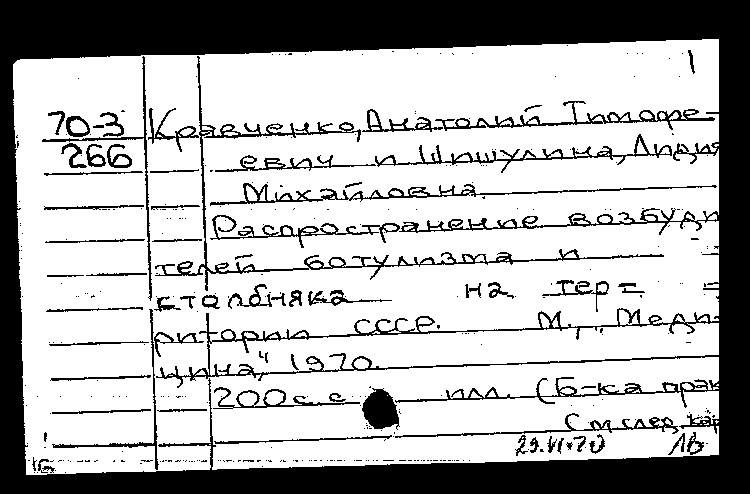 1
70-3 Кравченко, Анатолий Тимофе-
266 евич и Шишулина, Лидия
Михайловна.
Распространение возбуди
телей ботулизма и
столбняка на тер=
ритории СССР. М., „Меди-
цина," 1970.
200 с. с илл. (Б-ка прак
См след. кар
29.VI.70 ЛВ